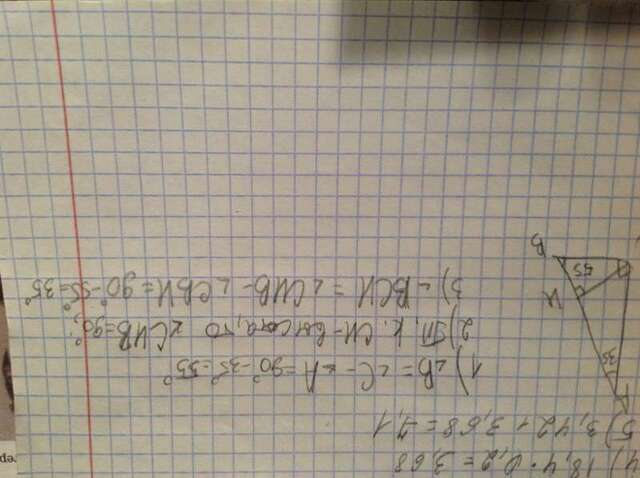 4) 18,4 · 0,2 = 3,68
5) 3,42 + 3,68 = 7,1
A
35
H
55
B
1) ∠B = ∠C - ∠A = 90° - 35° = 55°
2) Т. к. CH - высота, то ∠CHB = 90°;
3) ∠BCH = ∠CHB - ∠CBH = 90° - 55° = 35°